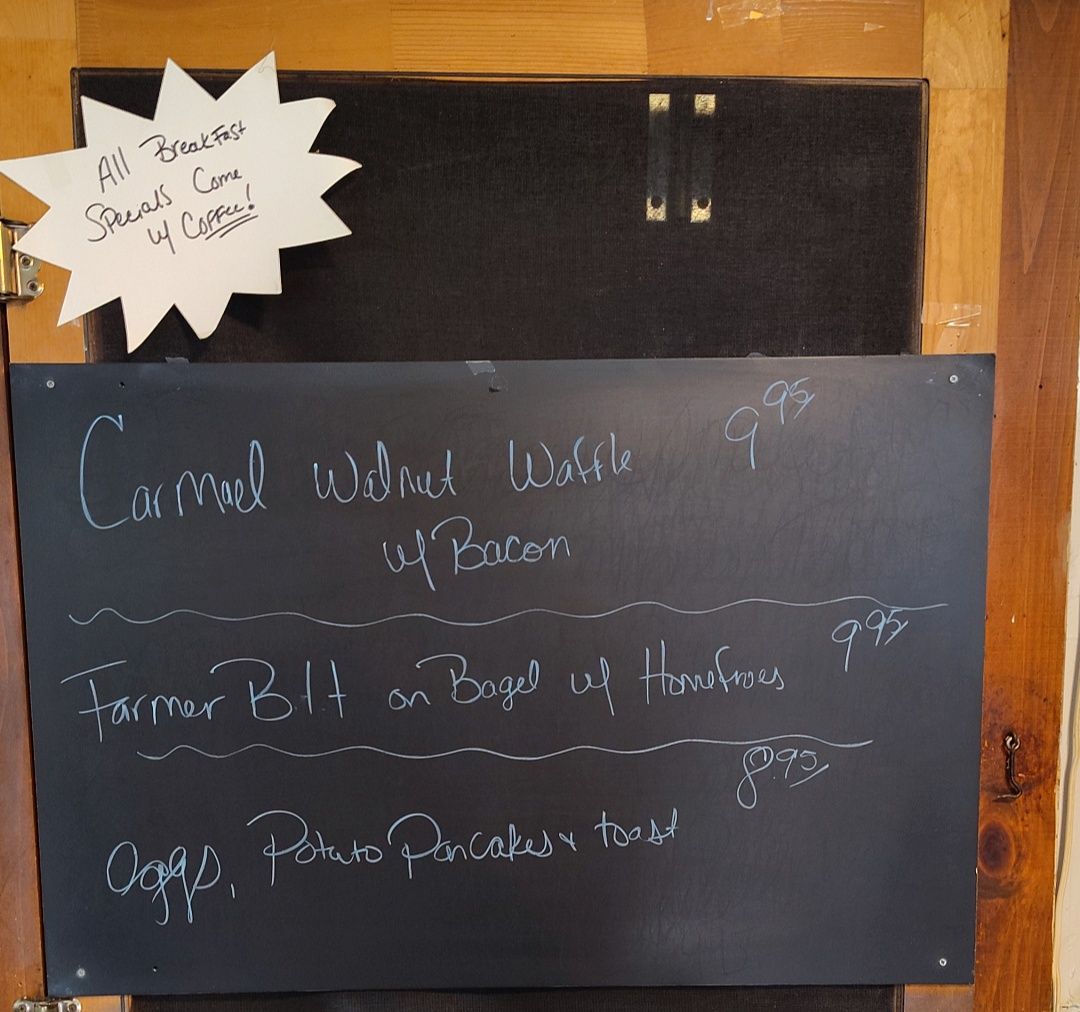 All Breakfast
Specials Come
w/ Coffee!
Carmael Walnut Waffle 9 95
w/ Bacon
Farmer Blt on Bagel w/ Homefries 9 95
8.95
Eggs, Potato Pancakes + toast